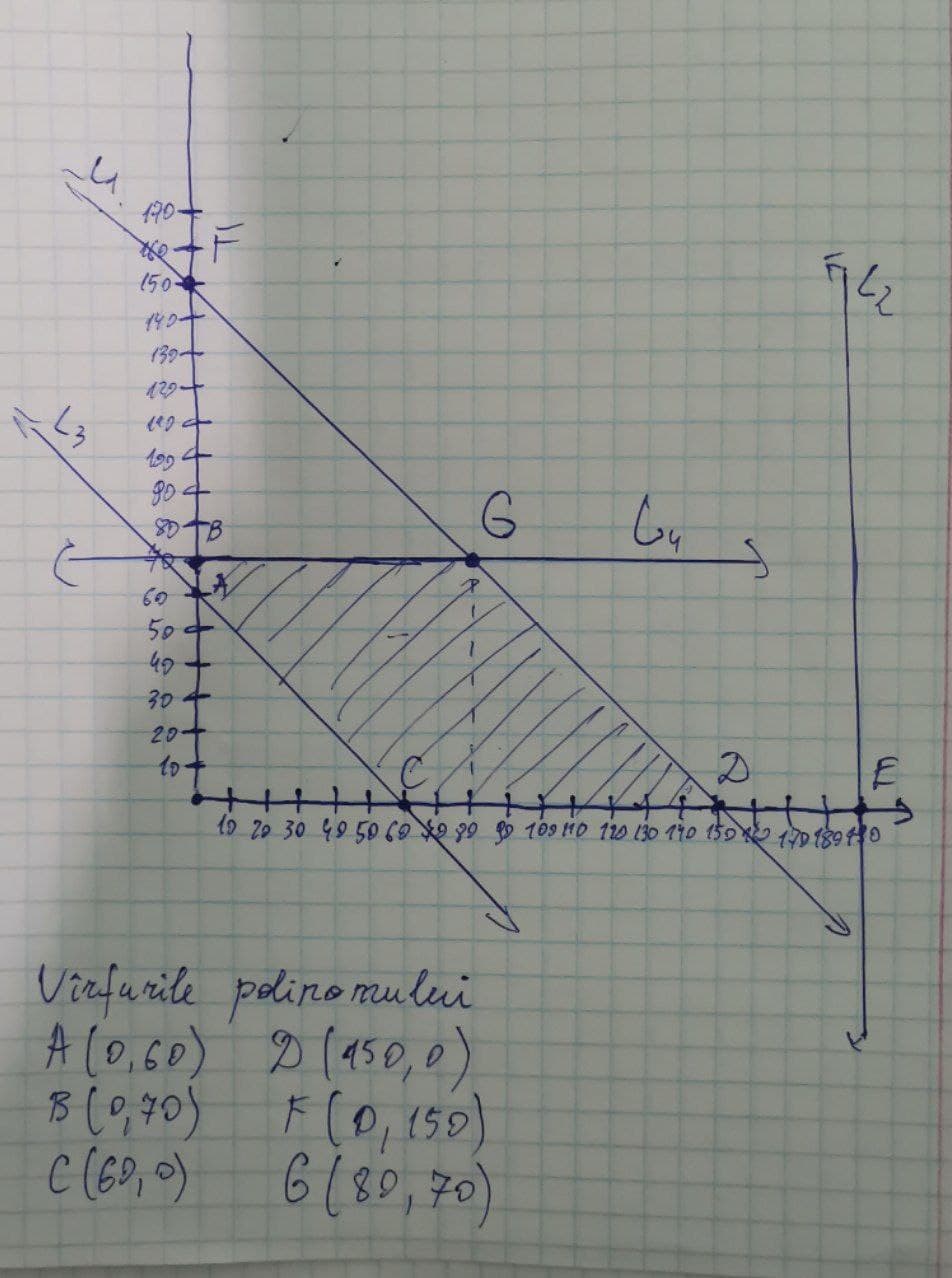 L1
170
160 F
150
L2
140
130
120
110
L3
100
90
G
80 B
L4
70
60 A
50
40
30
20
10
C D E
10 20 30 40 50 60 70 80 90 100 110 120 130 140 150 160 170 180 190
Vîrfurile polinomului
A(0,60) D(150,0)
B(0,70) F(0,150)
C(60,0) G(80,70)